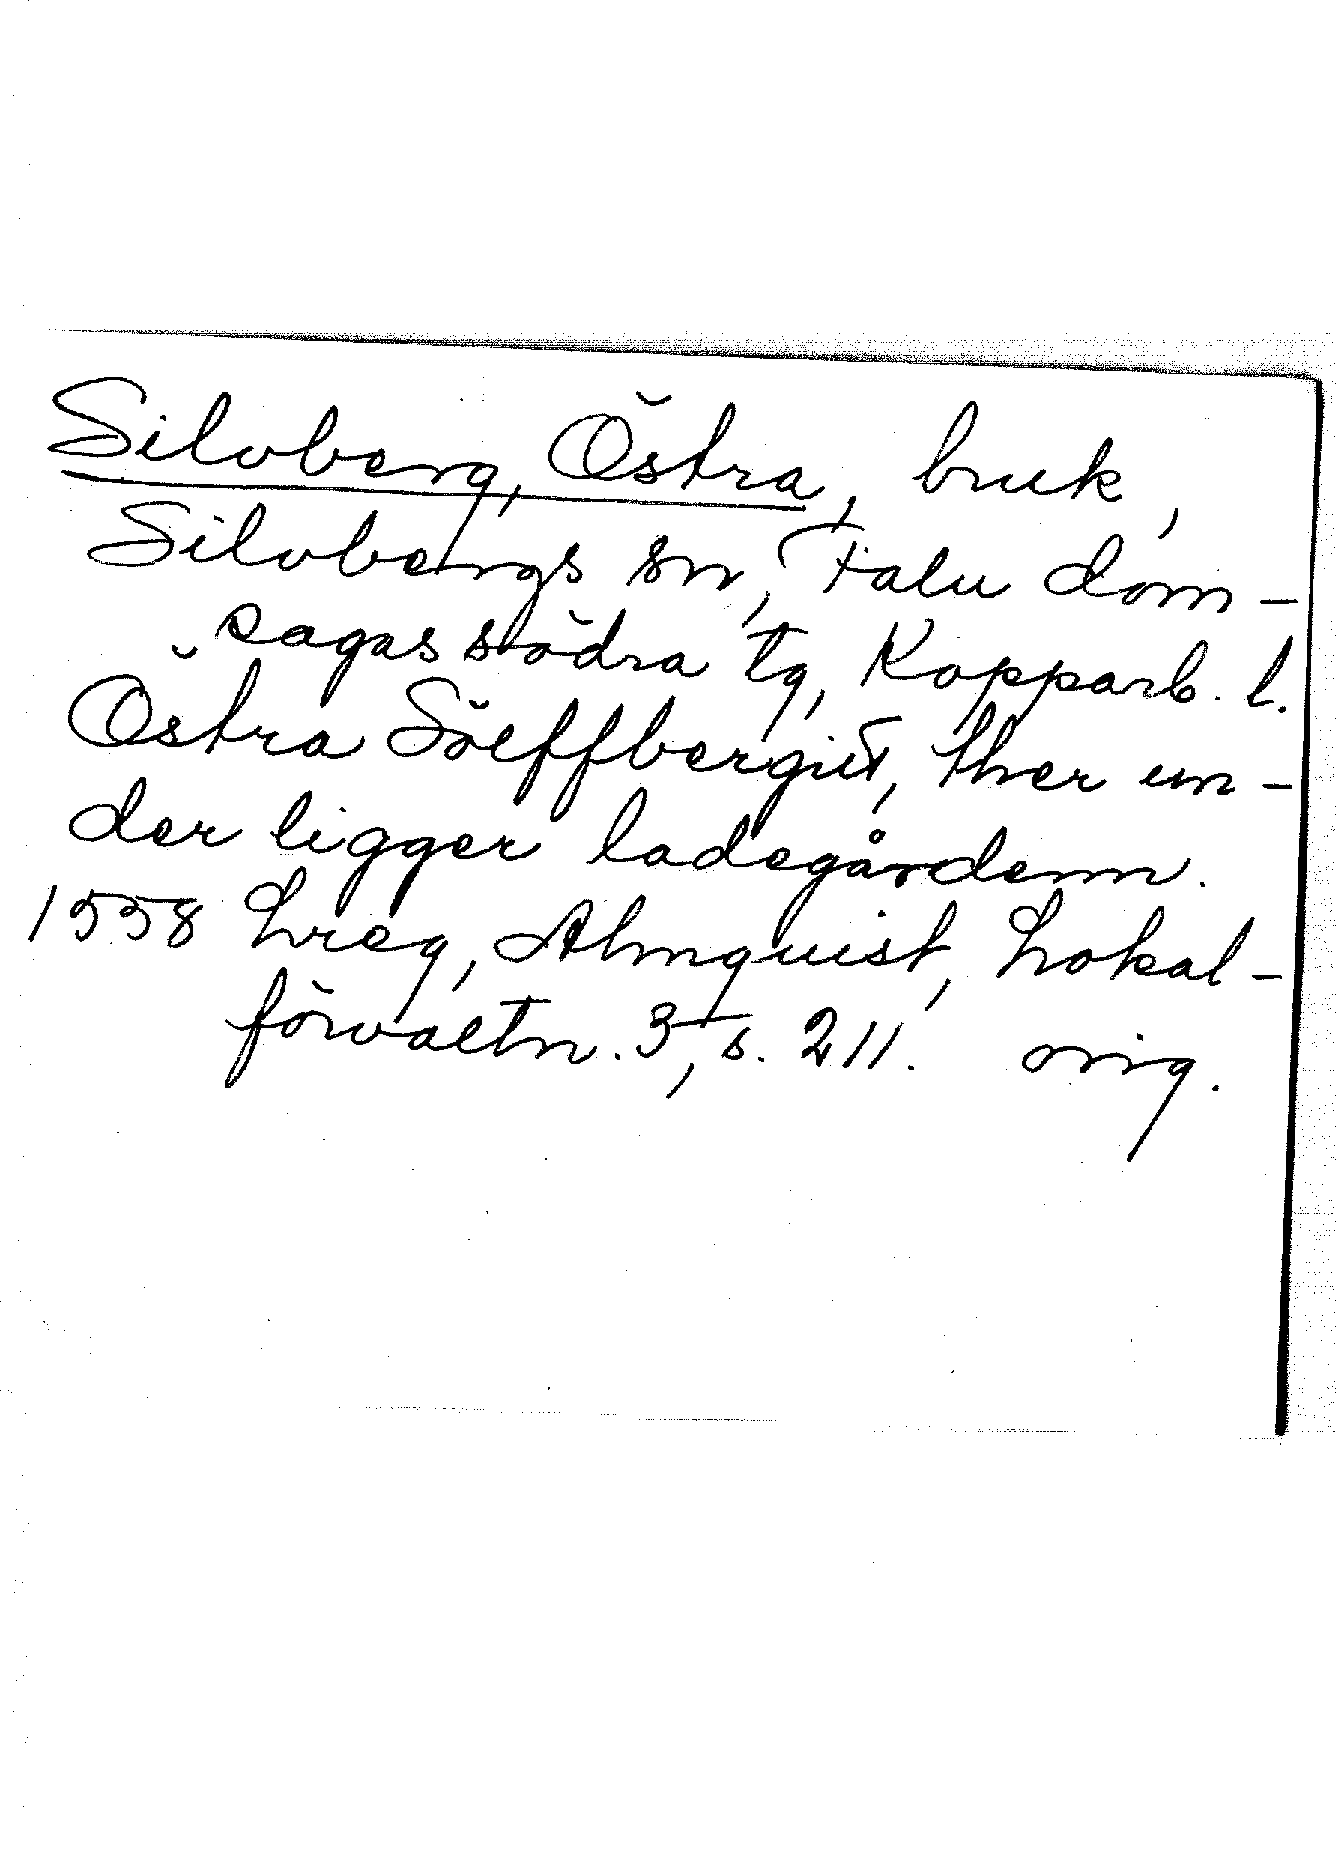 Silvberg, Östra, bruk,
Silvbergs sn, Falu dom-
sagas södra tg, Kopparb. l.
Östra Söelffbergiit, ther un-
der ligger ladegårdenn.
1558 Lreg, Almquist, Lokal-
förvaltn. 3, s. 211. orig.